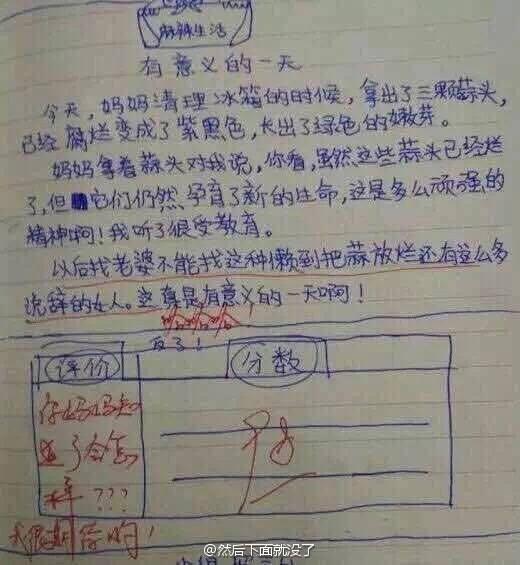 麻辣生活
有意义的一天
今天，妈妈清理冰箱的时候，拿出了三颗蒜头，
已经腐烂变成了紫黑色，长出了绿色的嫩芽。
妈妈拿着蒜头对我说，你看，虽然这些蒜头已经烂
了，但它们仍然孕育了新的生命，这是多么顽强的
精神啊！我听了很受教育。
以后找老婆不能找这种懒到把蒜放烂还有这么多
说辞的女人。这真是有意义的一天啊！
哈哈哈
评价
反了！
分数
你妈妈知
道了会怎
样???
我很期待哟！
@然后下面就没了